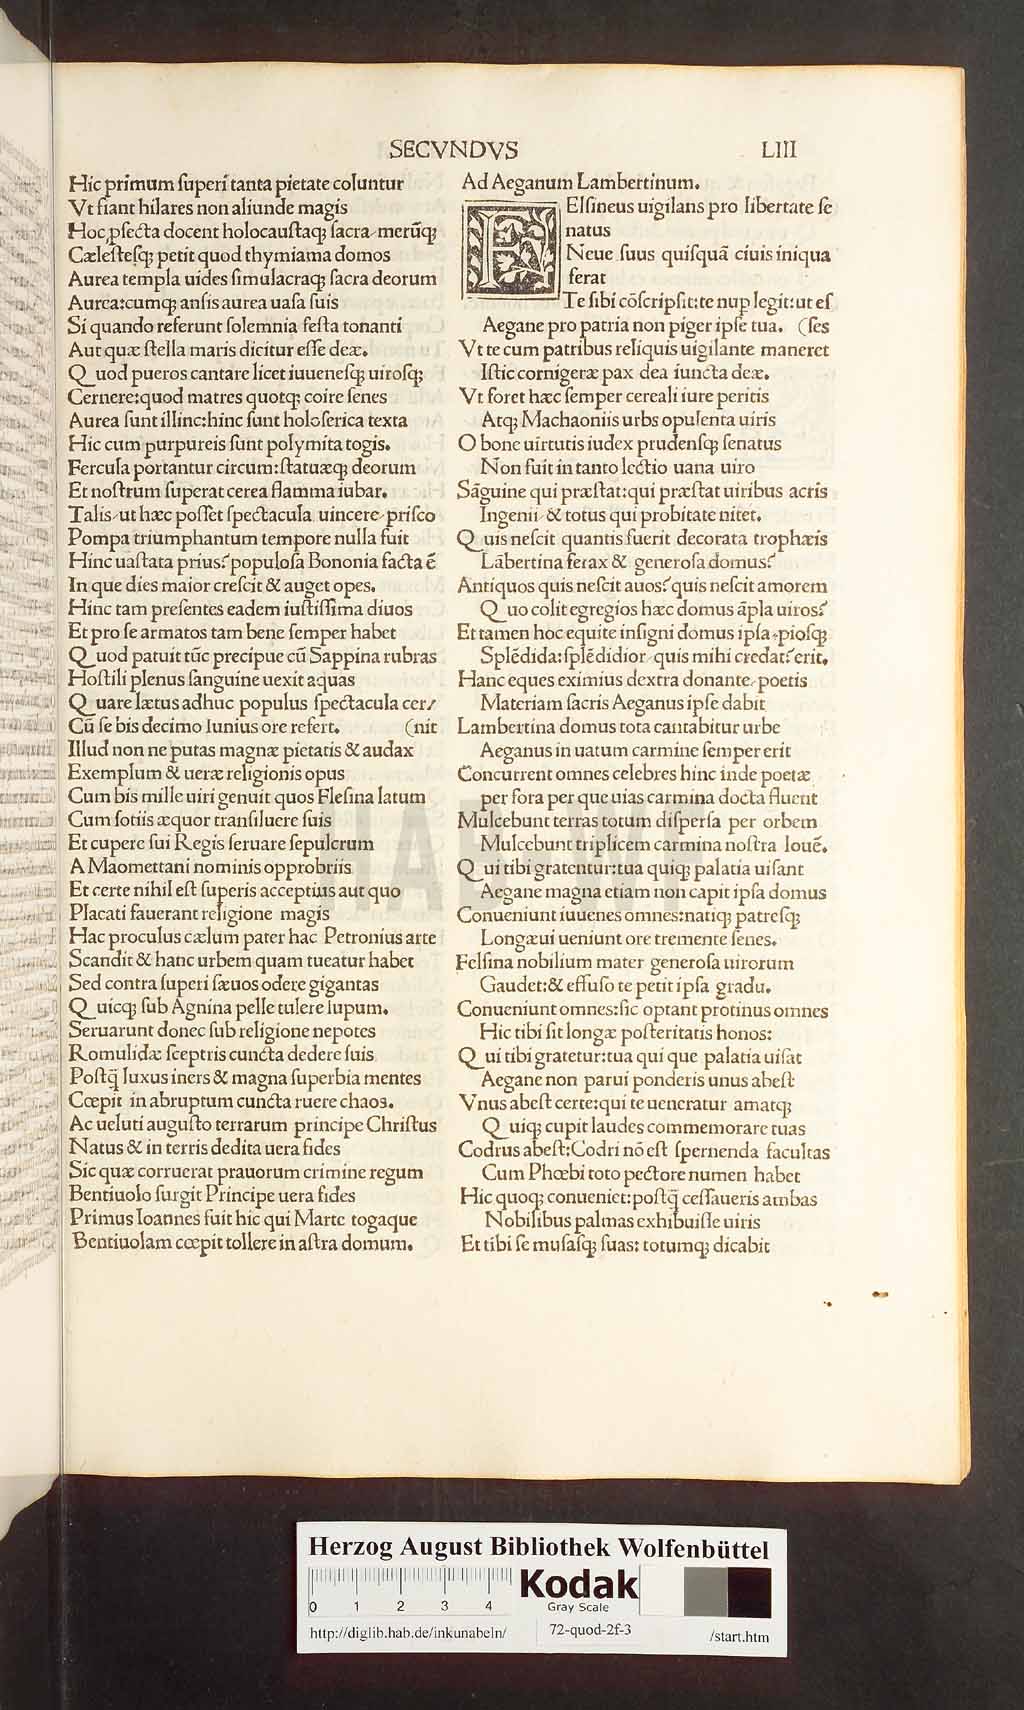 SECVNDVS
LIII
Hic primum ſuperi tanta pietate coluntur
Vt fiant hilares non aliunde magis
Hoc ꝓfecta docent holocauſtaq; ſacra merūq;
Cæleſteſq; petit quod thymiama domos
Aurea templa uides ſimulacraq; ſacra deorum
Aurea:cumq; anſis aurea uaſa ſuis
Si quando referunt ſolemnia feſta tonanti
Aut quæ ſtella maris dicitur eſſe deæ.
Quod pueros cantare licet iuueneſq; uiroſq;
Cernere:quod matres quotq; coire ſenes
Aurea ſunt illinc:hinc ſunt holoſerica texta
Hic cum purpureis ſunt polymita togis.
Fercula portantur circum:ſtatuæq; deorum
Et noſtrum ſuperat cerea flamma iubar.
Talis ut hæc poſſet ſpectacula uincere priſco
Pompa triumphantum tempore nulla fuit
Hinc uaſtata prius? populoſa Bononia facta ē
In que dies maior creſcit & auget opes.
Hinc tam preſentes eadem iuſtiſſima diuos
Et pro ſe armatos tam bene ſemper habet
Quod patuit tūc precipue cū Sappina rubras
Hoſtili plenus ſanguine uexit aquas
Quare lætus adhuc populus ſpectacula cer/
Cū ſe bis decimo Iunius ore refert. (nit
Illud non ne putas magnæ pietatis & audax
Exemplum & ueræ religionis opus
Cum bis mille uiri genuit quos Fleſina latum
Cum ſotiis æquor tranſiluere ſuis
Et cupere ſui Regis ſeruare ſepulcrum
A Maomettani nominis opprobriis
Et certe nihil eſt ſuperis acceptius aut quo
Placati fauerant religione magis
Hac proculus cælum pater hac Petronius arte
Scandit & hanc urbem quam tueatur habet
Sed contra ſuperi ſæuos odere gigantas
Quicq; ſub Agnina pelle tulere lupum.
Seruarunt donec ſub religione nepotes
Romulidæ ſceptris cuncta dedere ſuis
Poſtq̄ luxus iners & magna ſuperbia mentes
Cœpit in abruptum cuncta ruere chaos.
Ac ueluti auguſto terrarum principe Chriſtus
Natus & in terris dedita uera fides
Sic quæ corruerat prauorum crimine regum
Bentiuolo ſurgit Principe uera fides
Primus Ioannes fuit hic qui Marte togaque
Bentiuolam cœpit tollere in aſtra domum.
Ad Aeganum Lambertinum.
FElſineus uigilans pro libertate ſe
natus
Neue ſuus quiſquā ciuis iniqua
ferat
Te ſibi cōſcripſit:te nup legit:ut eſ
Aegane pro patria non piger ipſe tua. (ſes
Vt te cum patribus reliquis uigilante maneret
Iſtic cornigeræ pax dea iuncta deæ.
Vt foret hæc ſemper cereali iure peritis
Atq; Machaoniis urbs opulenta uiris
O bone uirtutis iudex prudenſq; ſenatus
Non fuit in tanto lectio uana uiro
Sāguine qui præſtat:qui præſtat uiribus acris
Ingenii & totus qui probitate nitet.
Quis neſcit quantis fuerit decorata trophæis
Lābertina ferax & generoſa domus?
Antiquos quis neſcit auos? quis neſcit amorem
Quo colit egregios hæc domus āpla uiros?
Et tamen hoc equite inſigni domus ipſa pioſq;
Splēdida:ſplēdidior quis mihi credat? erit.
Hanc eques eximius dextra donante poetis
Materiam ſacris Aeganus ipſe dabit
Lambertina domus tota cantabitur urbe
Aeganus in uatum carmine ſemper erit
Concurrent omnes celebres hinc inde poetæ
per fora per que uias carmina docta fluent
Mulcebunt terras totum diſperſa per orbem
Mulcebunt triplicem carmina noſtra Iouē.
Qui tibi gratentur:tua quiq; palatia uiſant
Aegane magna etiam non capit ipſa domus
Conueniunt iuuenes omnes:natiq; patreſq;
Longæui ueniunt ore tremente ſenes.
Felſina nobilium mater generoſa uirorum
Gaudet:& effuſo te petit ipſa gradu.
Conueniunt omnes:ſic optant protinus omnes
Hic tibi ſit longæ poſteritatis honos:
Qui tibi gratetur:tua qui que palatia uiſat
Aegane non parui ponderis unus abeſt
Vnus abeſt certe:qui te ueneratur amatq;
Quiq; cupit laudes commemorare tuas
Codrus abeſt:Codri nō eſt ſpernenda facultas
Cum Phœbi toto pectore numen habet
Hic quoq; conueniet:poſtq̄ ceſſaueris ambas
Nobilibus palmas exhibuiſſe uiris
Et tibi ſe muſaſq; ſuas: totumq; dicabit
HAB WF
Herzog August Bibliothek Wolfenbüttel
0 1 2 3 4
Kodak
Gray Scale
http://diglib.hab.de/inkunabeln/
72-quod-2f-3
/start.htm